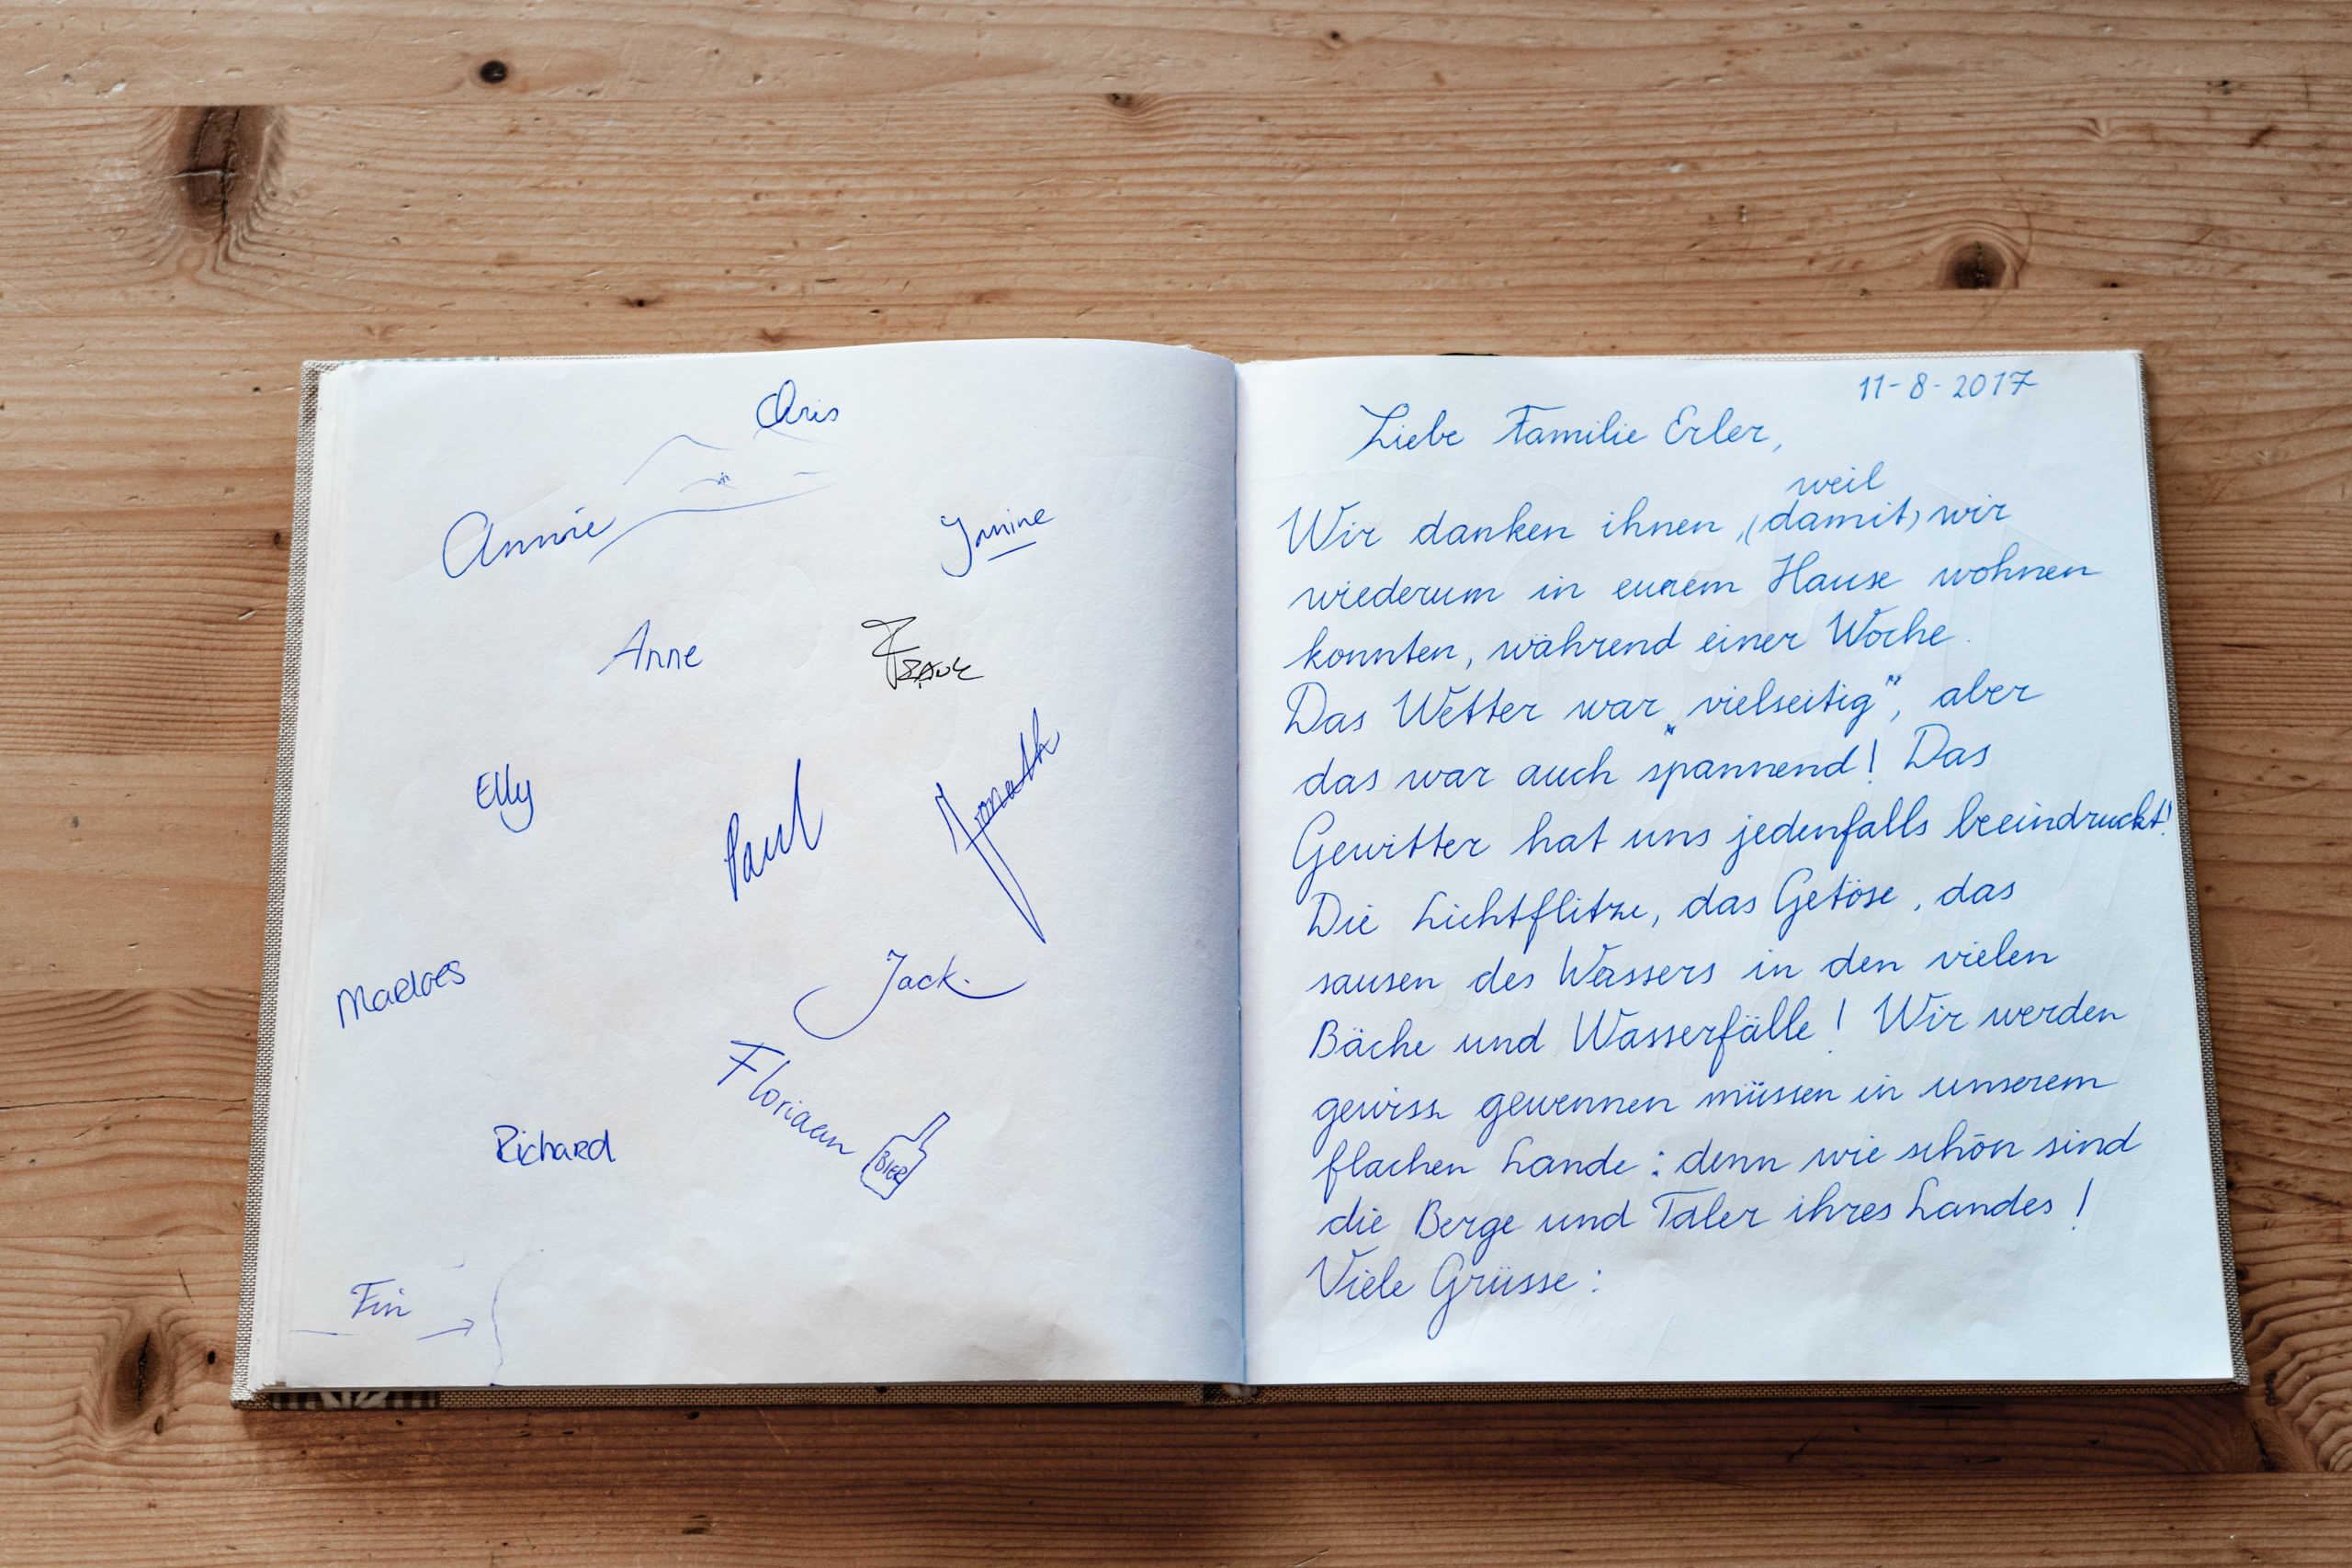 Chris
Annie
Janine
Anne
Frank
Elly
Paul
Jonath
Marloes
Jack.
Floriaan
BIER
Richard
Fin
11-8-2017
Liebe Familie Erler,
weil
Wir danken ihnen, (damit) wir
wiederum in eurem Hause wohnen
konnten, während einer Woche.
Das Wetter war „vielseitig", aber
das war auch spannend! Das
Gewitter hat uns jedenfalls beeindruckt!
Die Lichtflitze, das Getöse, das
sausen des Wassers in den vielen
Bäche und Wasserfälle! Wir werden
gewiss gewennen müssen in unserem
flachen Lande: denn wie schön sind
die Berge und Täler ihres Landes!
Viele Grüsse: